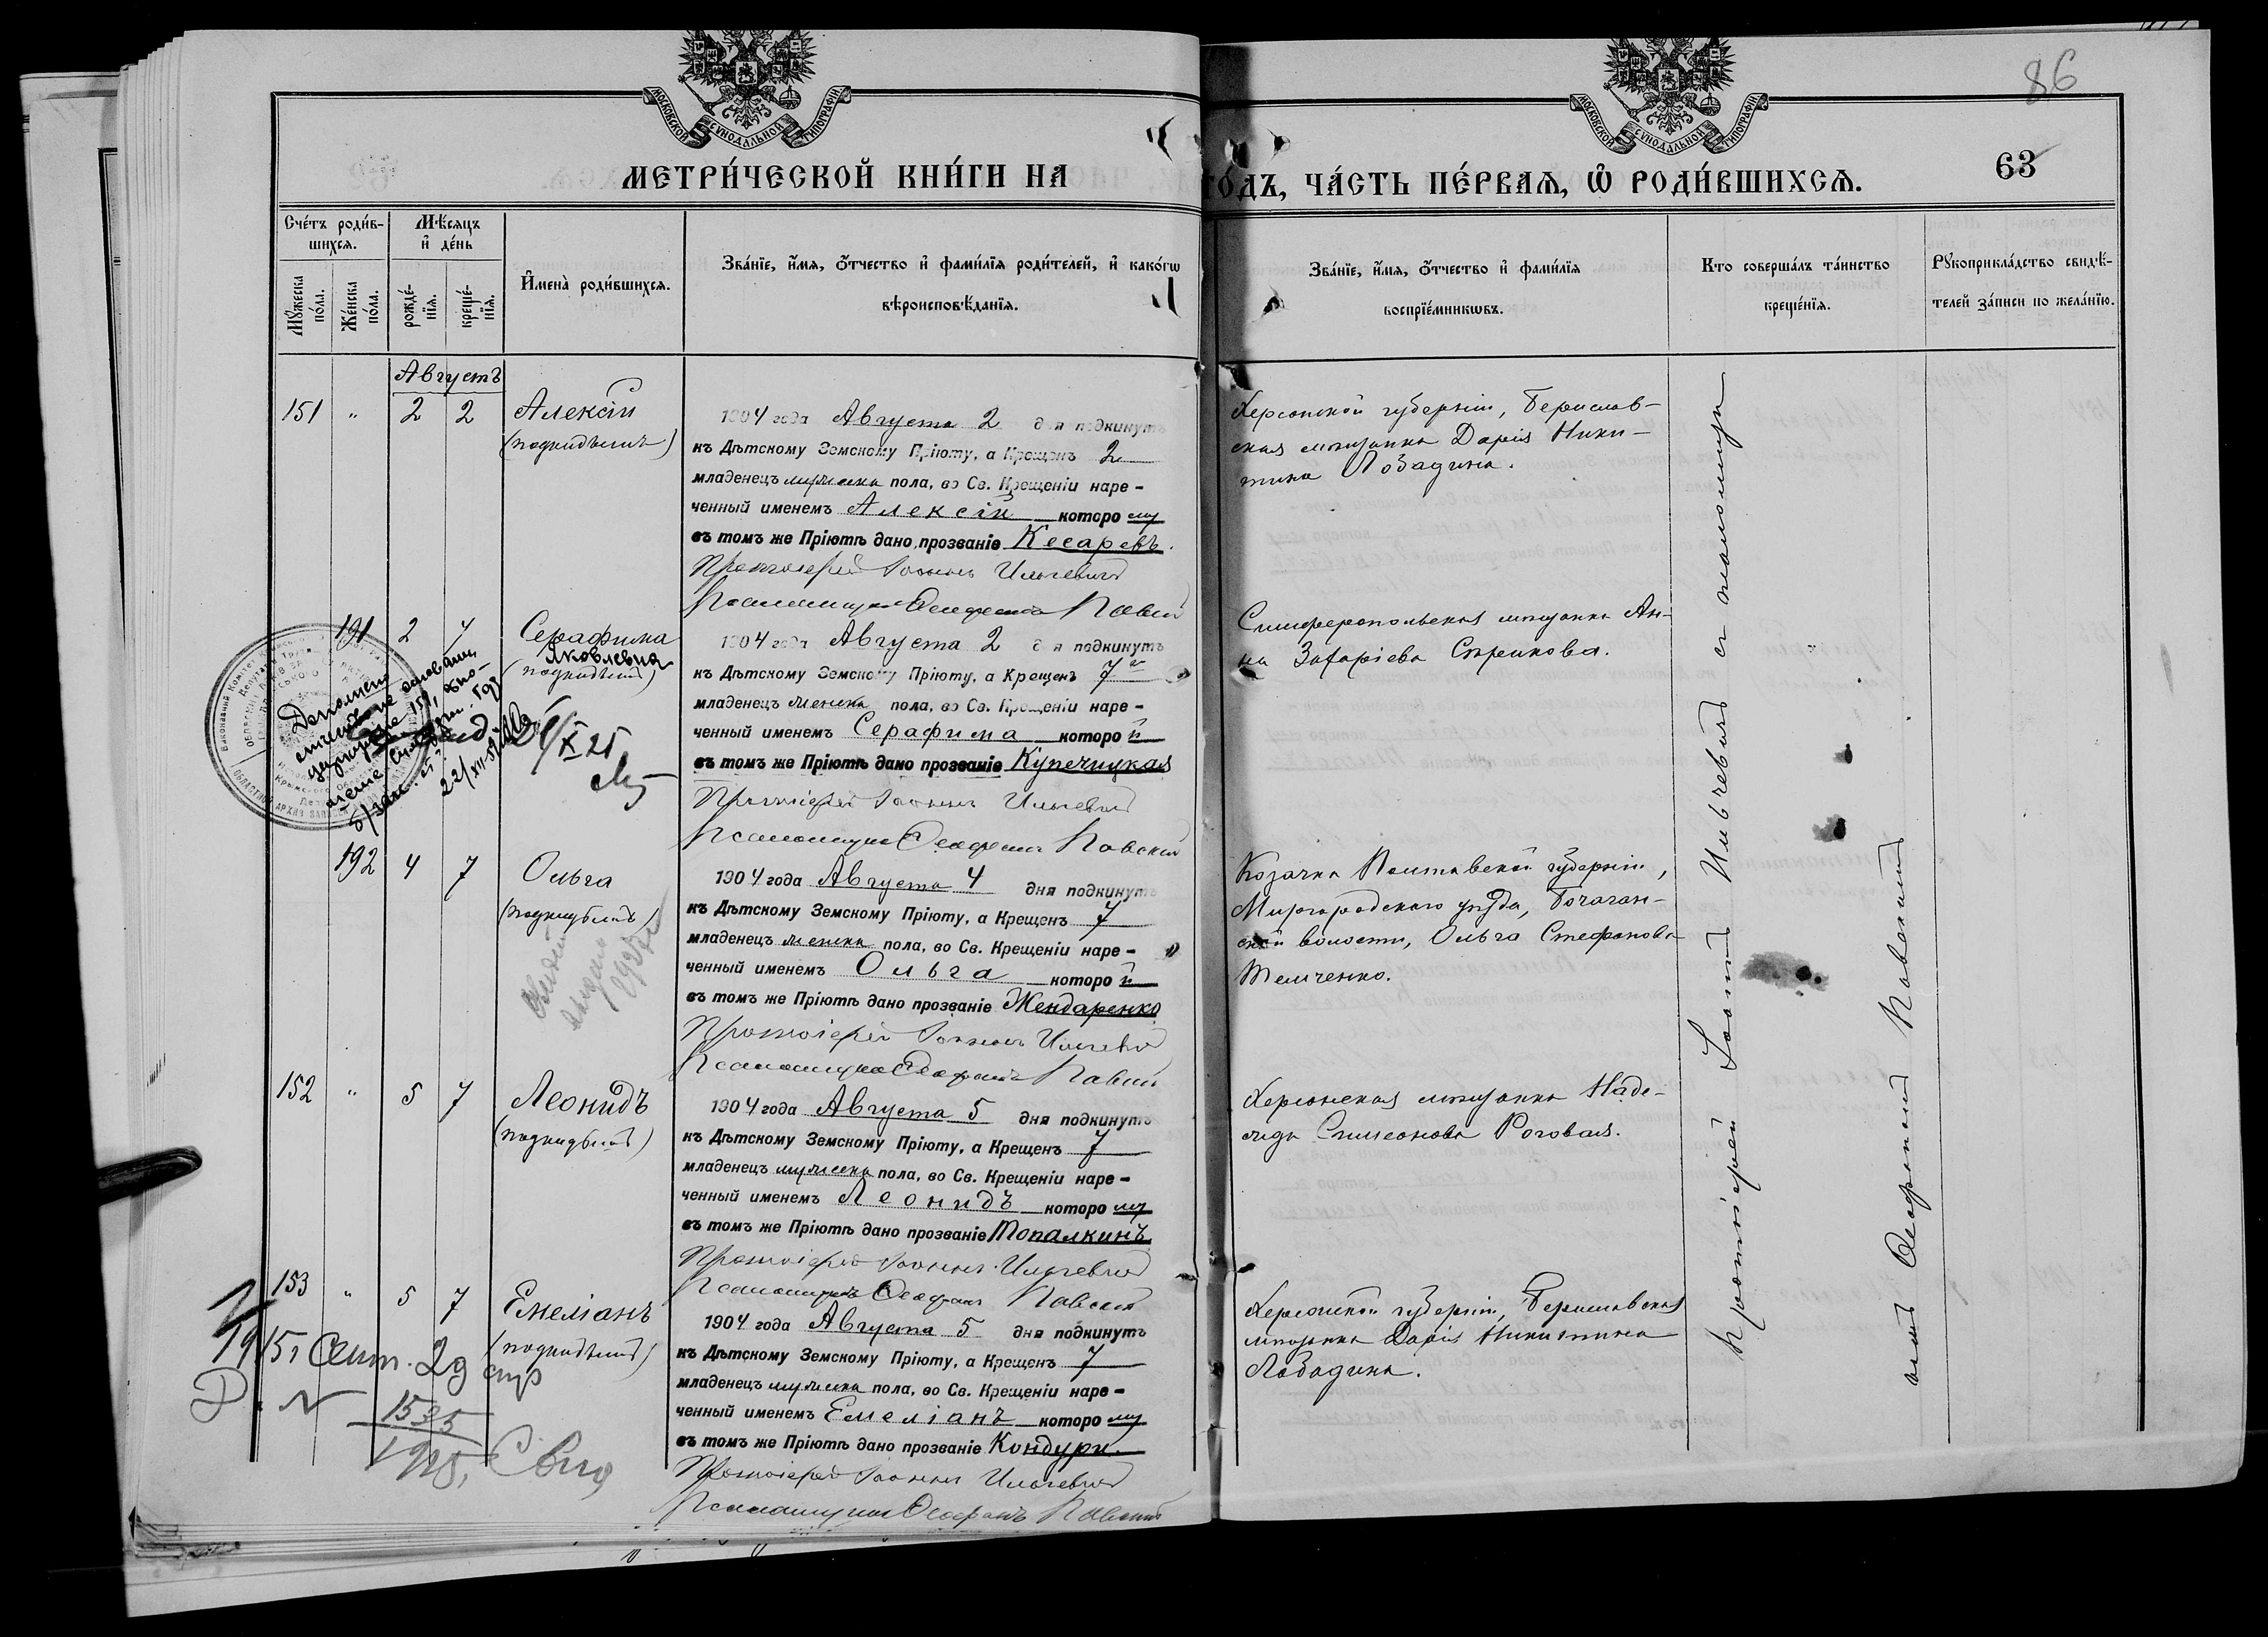 86
МОСКОВСКОЙ СѴНОДАЛЬНОЙ ТИПОГРАФІИ
МОСКОВСКОЙ СѴНОДАЛЬНОЙ ТИПОГРАФІИ
МЕТРИ́ЧЕСКОЙ КНИ́ГИ НА ГО́ДЪ, ЧА́СТЬ ПЕ́РВАѦ, Ѽ РОДИ́ВШИХСѦ.
63
Сче́тъ роди́в-
шихсѧ.
Мѣ́сѧцъ
и҆ де́нь
Мꙋ́жеска по́ла.
Же́нска по́ла.
рожде́-
нїѧ.
креще́-
нїѧ.
И҆мена̀ роди́вшихсѧ.
Зва́нїе, и҆́мѧ, ѻ҆́тчество и҆ фами́лїѧ роди́телей, и҆ како́гѡ
вѣроисповѣ́данїѧ.
Зва́нїе, и҆́мѧ, ѻ҆́тчество и҆ фами́лїѧ
воспрїе́мникѡвъ.
Кто соверша́лъ та́инство
креще́нїѧ.
Рꙋкоприкла́дство свидѣ́-
телей за́писи по жела́нїю.
Августъ
151 " 2 2 Алексѣй
(подкидышъ)
1904 года Августа 2 дня подкинутъ
къ Дѣтскому Земскому Пріюту, а Крещенъ 2
младенецъ мужеска пола, во Св. Крещеніи наре-
ченный именемъ Алексій которому
въ томъ же Пріютѣ дано прозваніе Кесаревъ.
Протоіерей Іоаннъ Ильчевичъ
Псаломщикъ Ѳеофанъ Павскій
Херсонской губерніи, Берислав-
ская мѣщанка Дарія Ники-
тина Лободина.
191 2 7 Серафима
Яковлевна
(подкидышъ)
1904 года Августа 2 дня подкинутъ
къ Дѣтскому Земскому Пріюту, а Крещенъ 7
младенецъ женска пола, во Св. Крещеніи наре-
ченный именемъ Серафима которой
въ томъ же Пріютѣ дано прозваніе Купечицкая
Протоіерей Іоаннъ Ильчевичъ
Псаломщикъ Ѳеофанъ Павскій
Симферопольская мѣщанка Ан-
на Захаріева Стрешкова.
192 4 7 Ольга
(подкидышъ)
1904 года Августа 4 дня подкинутъ
къ Дѣтскому Земскому Пріюту, а Крещенъ 7
младенецъ женска пола, во Св. Крещеніи наре-
ченный именемъ Ольга которой
въ томъ же Пріютѣ дано прозваніе Жендаренко
Протоіерей Іоаннъ Ильчевичъ
Псаломщикъ Ѳеофанъ Павскій
Козачка Полтавской губерніи,
Миргородского уѣзда,
волости, Ольга Стефанова
Темченко.
152 " 5 7 Леонидъ
(подкидышъ)
1904 года Августа 5 дня подкинутъ
къ Дѣтскому Земскому Пріюту, а Крещенъ 7
младенецъ мужеска пола, во Св. Крещеніи наре-
ченный именемъ Леонидъ которому
въ томъ же Пріютѣ дано прозваніе Топалкинъ
Протоіерей Іоаннъ Ильчевичъ
Псаломщикъ Ѳеофанъ Павскій
Херсонская мѣщанка Наде-
жда Симеонова Роговая.
153 " 5 7 Емеліанъ
(подкидышъ)
1904 года Августа 5 дня подкинутъ
къ Дѣтскому Земскому Пріюту, а Крещенъ 7
младенецъ мужеска пола, во Св. Крещеніи наре-
ченный именемъ Емеліанъ которому
въ томъ же Пріютѣ дано прозваніе Кондури.
Протоіерей Іоаннъ Ильчевичъ
Псаломщикъ Ѳеофанъ Павскій
Херсонской губерніи, Бериславская
мѣщанка Дарія Никитина
Лободина.
Протоіерей Іоаннъ Ильчевичъ съ псаломщи-
комъ Ѳеофаномъ Павскимъ
1915 Сент. 29
1535